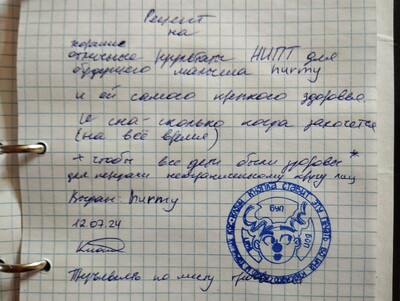 Рецепт
на
хорошие
отличные результаты НИПТ для
будущего малыша hurmy
и ей самого крепкого здоровья
и сна - сколько когда захочется
(на всё время)
* чтобы все дети были здоровы *
для передачи неограниченному кругу лиц
Выдан: hurmy
12.07.24
Предъявлять по месту
БУП